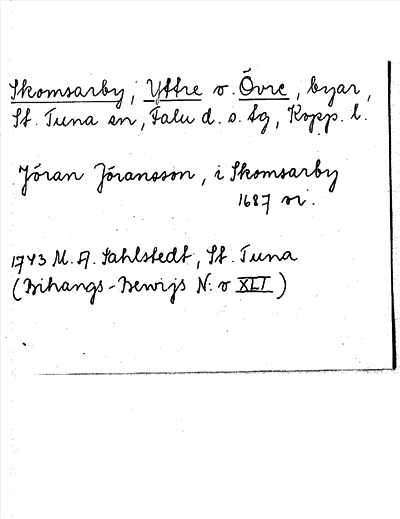 Skomsarby, Yttre o. Övre, byar,
St. Tuna sn, Falu d. s. tg, Kopp. l.
Jöran Jöransson, i Skomsarby
1687 nr.
1743 M. A. Sahlstedt, St. Tuna
(Bihangs-Bewijs N. o XLI)